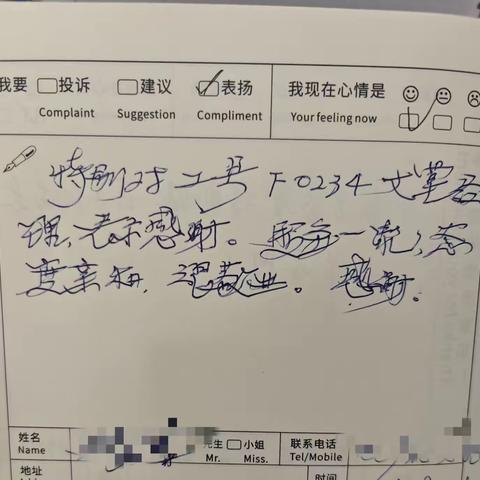 我要 投诉 建议 表扬 我现在心情是
Complaint Suggestion Compliment Your feeling now
特别对工号F0234文革君
理,表示感谢。服务一流,态
度亲和,敬业。感谢。
姓名 先生 小姐 联系电话
Name Mr. Miss. Tel/Mobile
地址 时间
Address